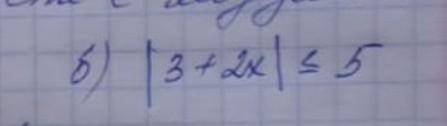 б) |3 + 2x| ≤ 5